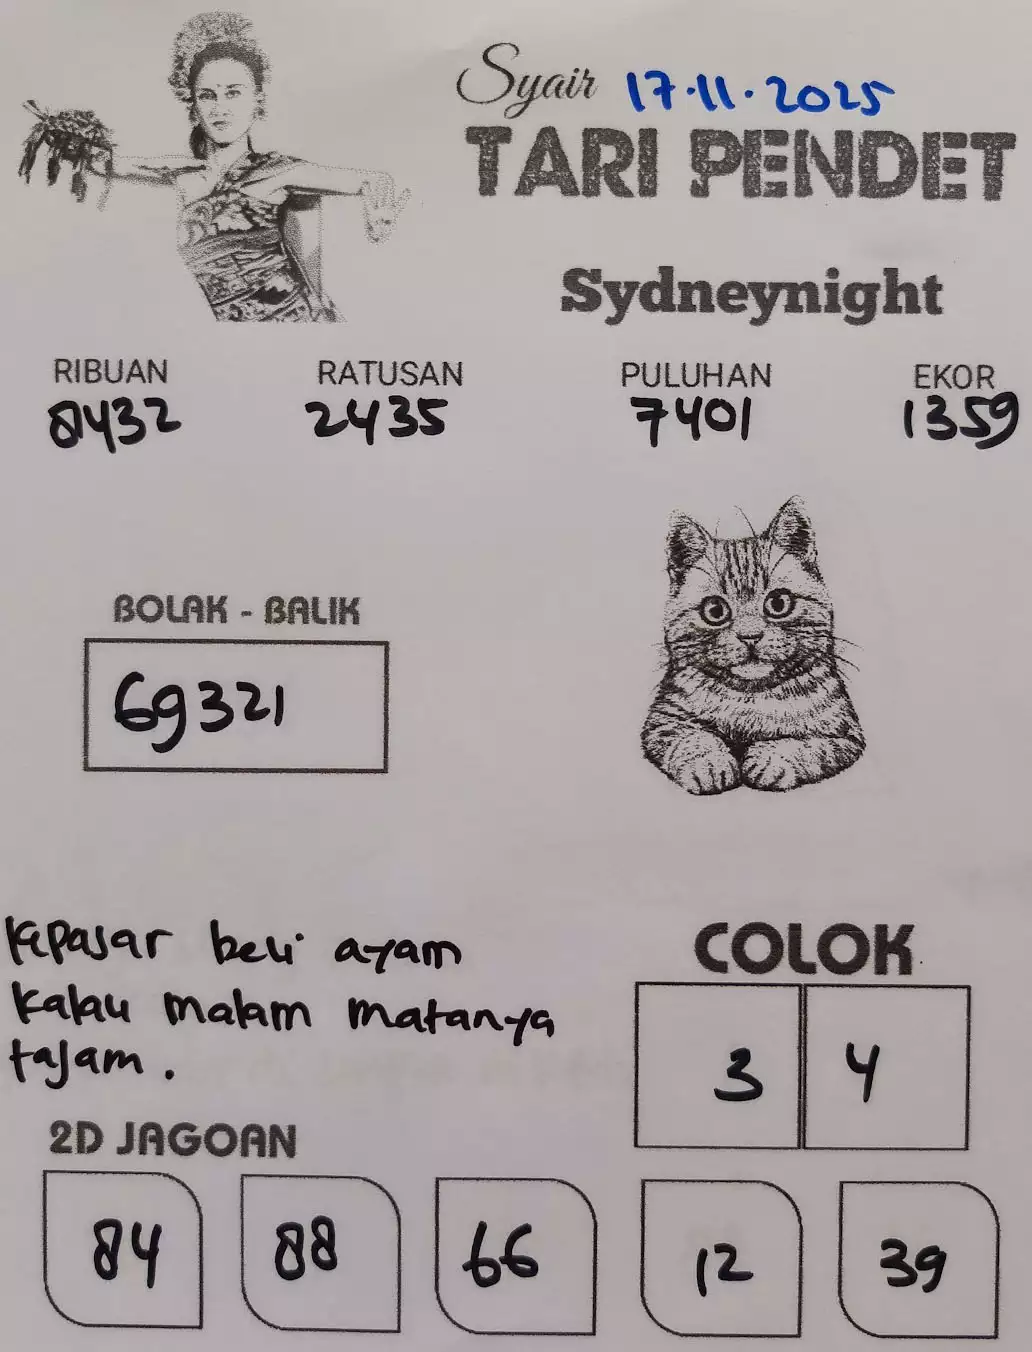 Syair 17.11.2025
TARI PENDET
Sydneynight
RIBUAN RATUSAN PULUHAN EKOR
8432 2435 7401 1359
BOLAK - BALIK
69321
kepasar beli ayam
kalau malam matanya
tajam.
COLOK
3 4
2D JAGOAN
84 88 66 12 39